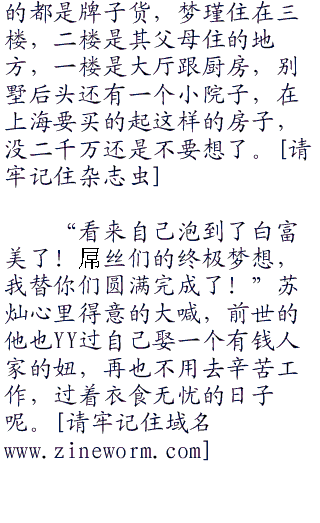 的都是牌子货，梦瑾住在三
楼，二楼是其父母住的地
方，一楼是大厅跟厨房，别
墅后头还有一个小院子，在
上海要买的起这样的房子，
没二千万还是不要想了。[请
牢记住杂志虫]
“看来自己泡到了白富
美了！屌丝们的终极梦想，
我替你们圆满完成了！”苏
灿心里得意的大喊，前世的
他也YY过自己娶一个有钱人
家的妞，再也不用去辛苦工
作，过着衣食无忧的日子
呢。[请牢记住域名
www.zineworm.com]